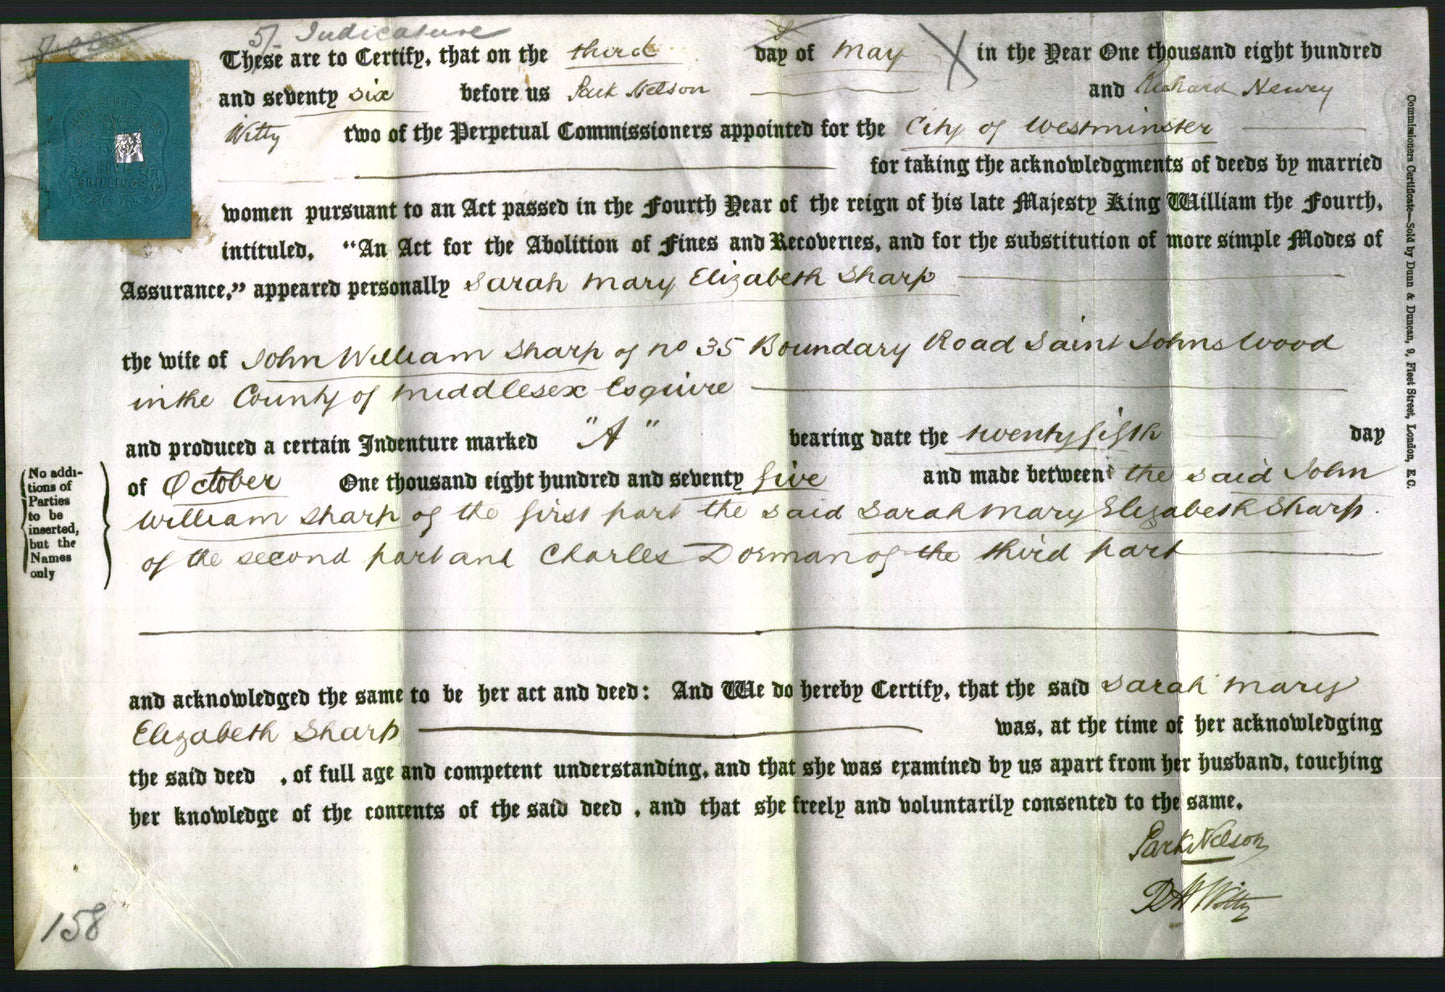 5/- Judicature
These are to Certify, that on the third day of May in the Year One thousand eight hundred
and seventy six before us Park Nelson and Richard Newey
Witty two of the Perpetual Commissioners appointed for the City of Westminster
for taking the acknowledgments of deeds by married
women pursuant to an Act passed in the Fourth Year of the reign of his late Majesty King William the Fourth,
intituled, "An Act for the Abolition of Fines and Recoveries, and for the substitution of more simple Modes of
Assurance," appeared personally Sarah Mary Elizabeth Sharp
the wife of John William Sharp of no 35 Boundary Road Saint Johns Wood
in the County of Middlesex Esquire
and produced a certain Indenture marked "A" bearing date the twenty fifth day
of October One thousand eight hundred and seventy five and made between the said John
William Sharp of the first part the said Sarah Mary Elizabeth Sharp
of the second part and Charles Dorman of the third part
No addi-
tions of
Parties
to be
inserted,
but the
Names
only
and acknowledged the same to be her act and deed: And We do hereby Certify, that the said Sarah Mary
Elizabeth Sharp was, at the time of her acknowledging
the said deed , of full age and competent understanding, and that she was examined by us apart from her husband, touching
her knowledge of the contents of the said deed , and that she freely and voluntarily consented to the same.
Park Nelson
R N Witty
158
Commissioners Certificate—Sold by Dunn & Duncan, 9, Fleet Street, London, E.C.
FIVE
SHILLINGS